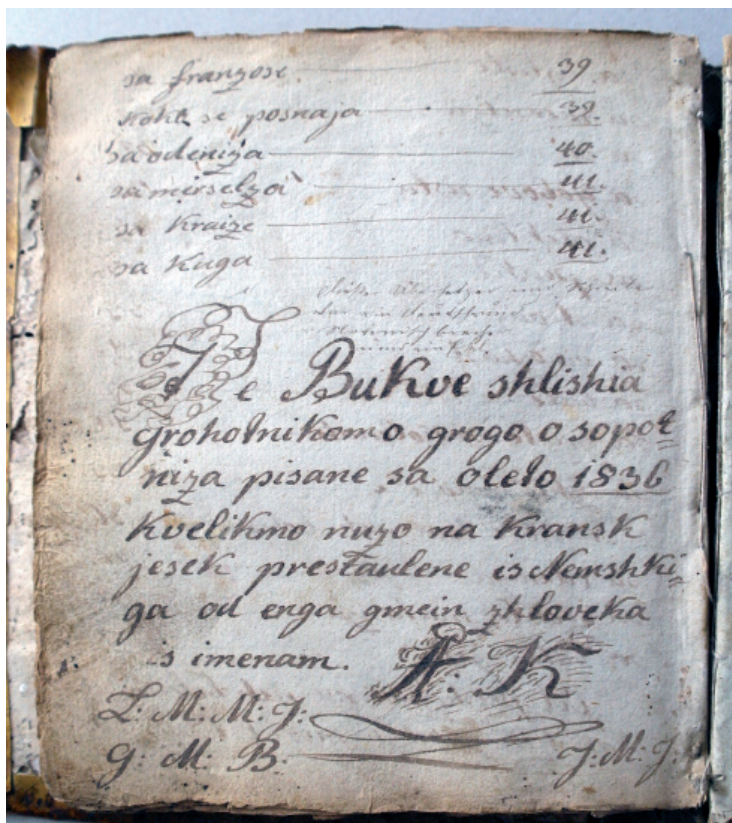 sa franzose. 39.
koku se posnaja 39.
sa odeniza 40.
sa merselza 41.
sa Kraize 41.
sa Kuga 41.
Te Bukve shlishia
grohotnikomo grogo o sopot=
niza pisane sa oleto 1836
kvelikmo nuzo na Kransk
jesek prestaulene is Nemshki=
ga od enga gmein zhloveka
s imenam. A: K
L: M: M: J:
G: M: B. J: M: J: